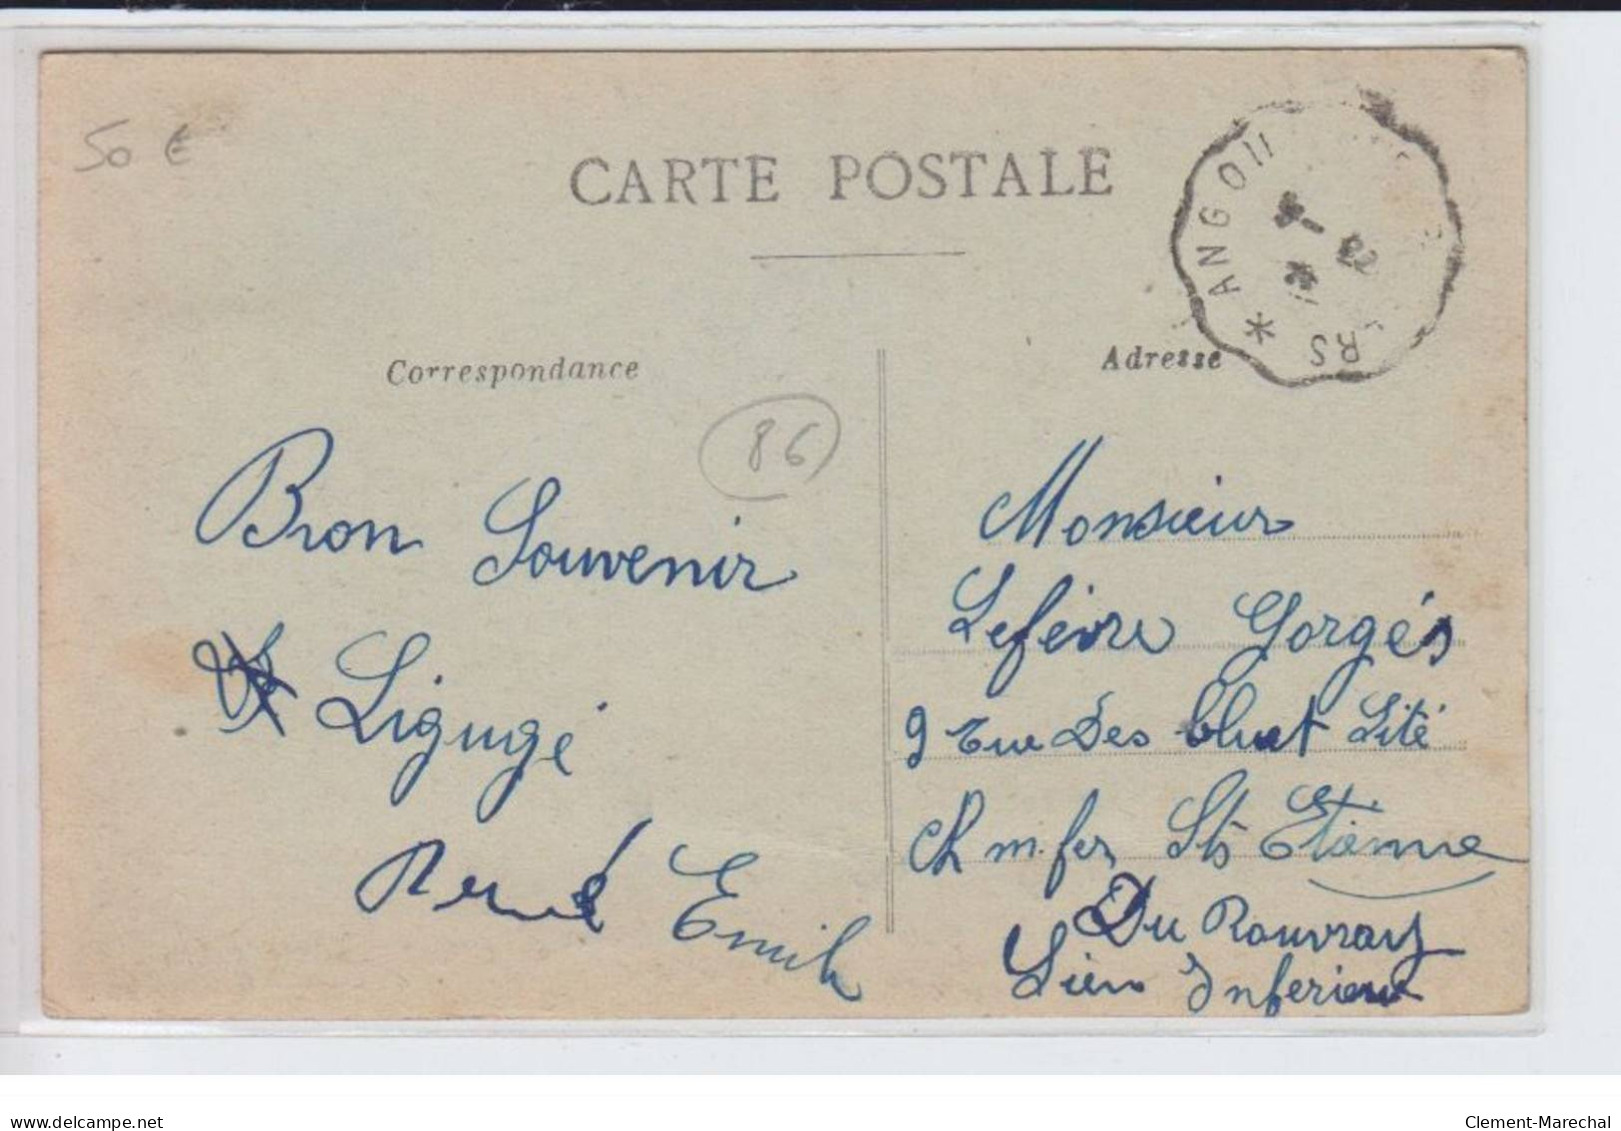 50 €
CARTE POSTALE
ANGOU
RS *
Correspondance
Adresse
86
Bon Souvenir
Ligugé
René Emile
Monsieur
Lefévre Gorgés
9 rue Des bluet Sité
Ch m. fer St Etienne
Du Rouvray
Inferieur
www.delcampe.net
Clement-Marechal